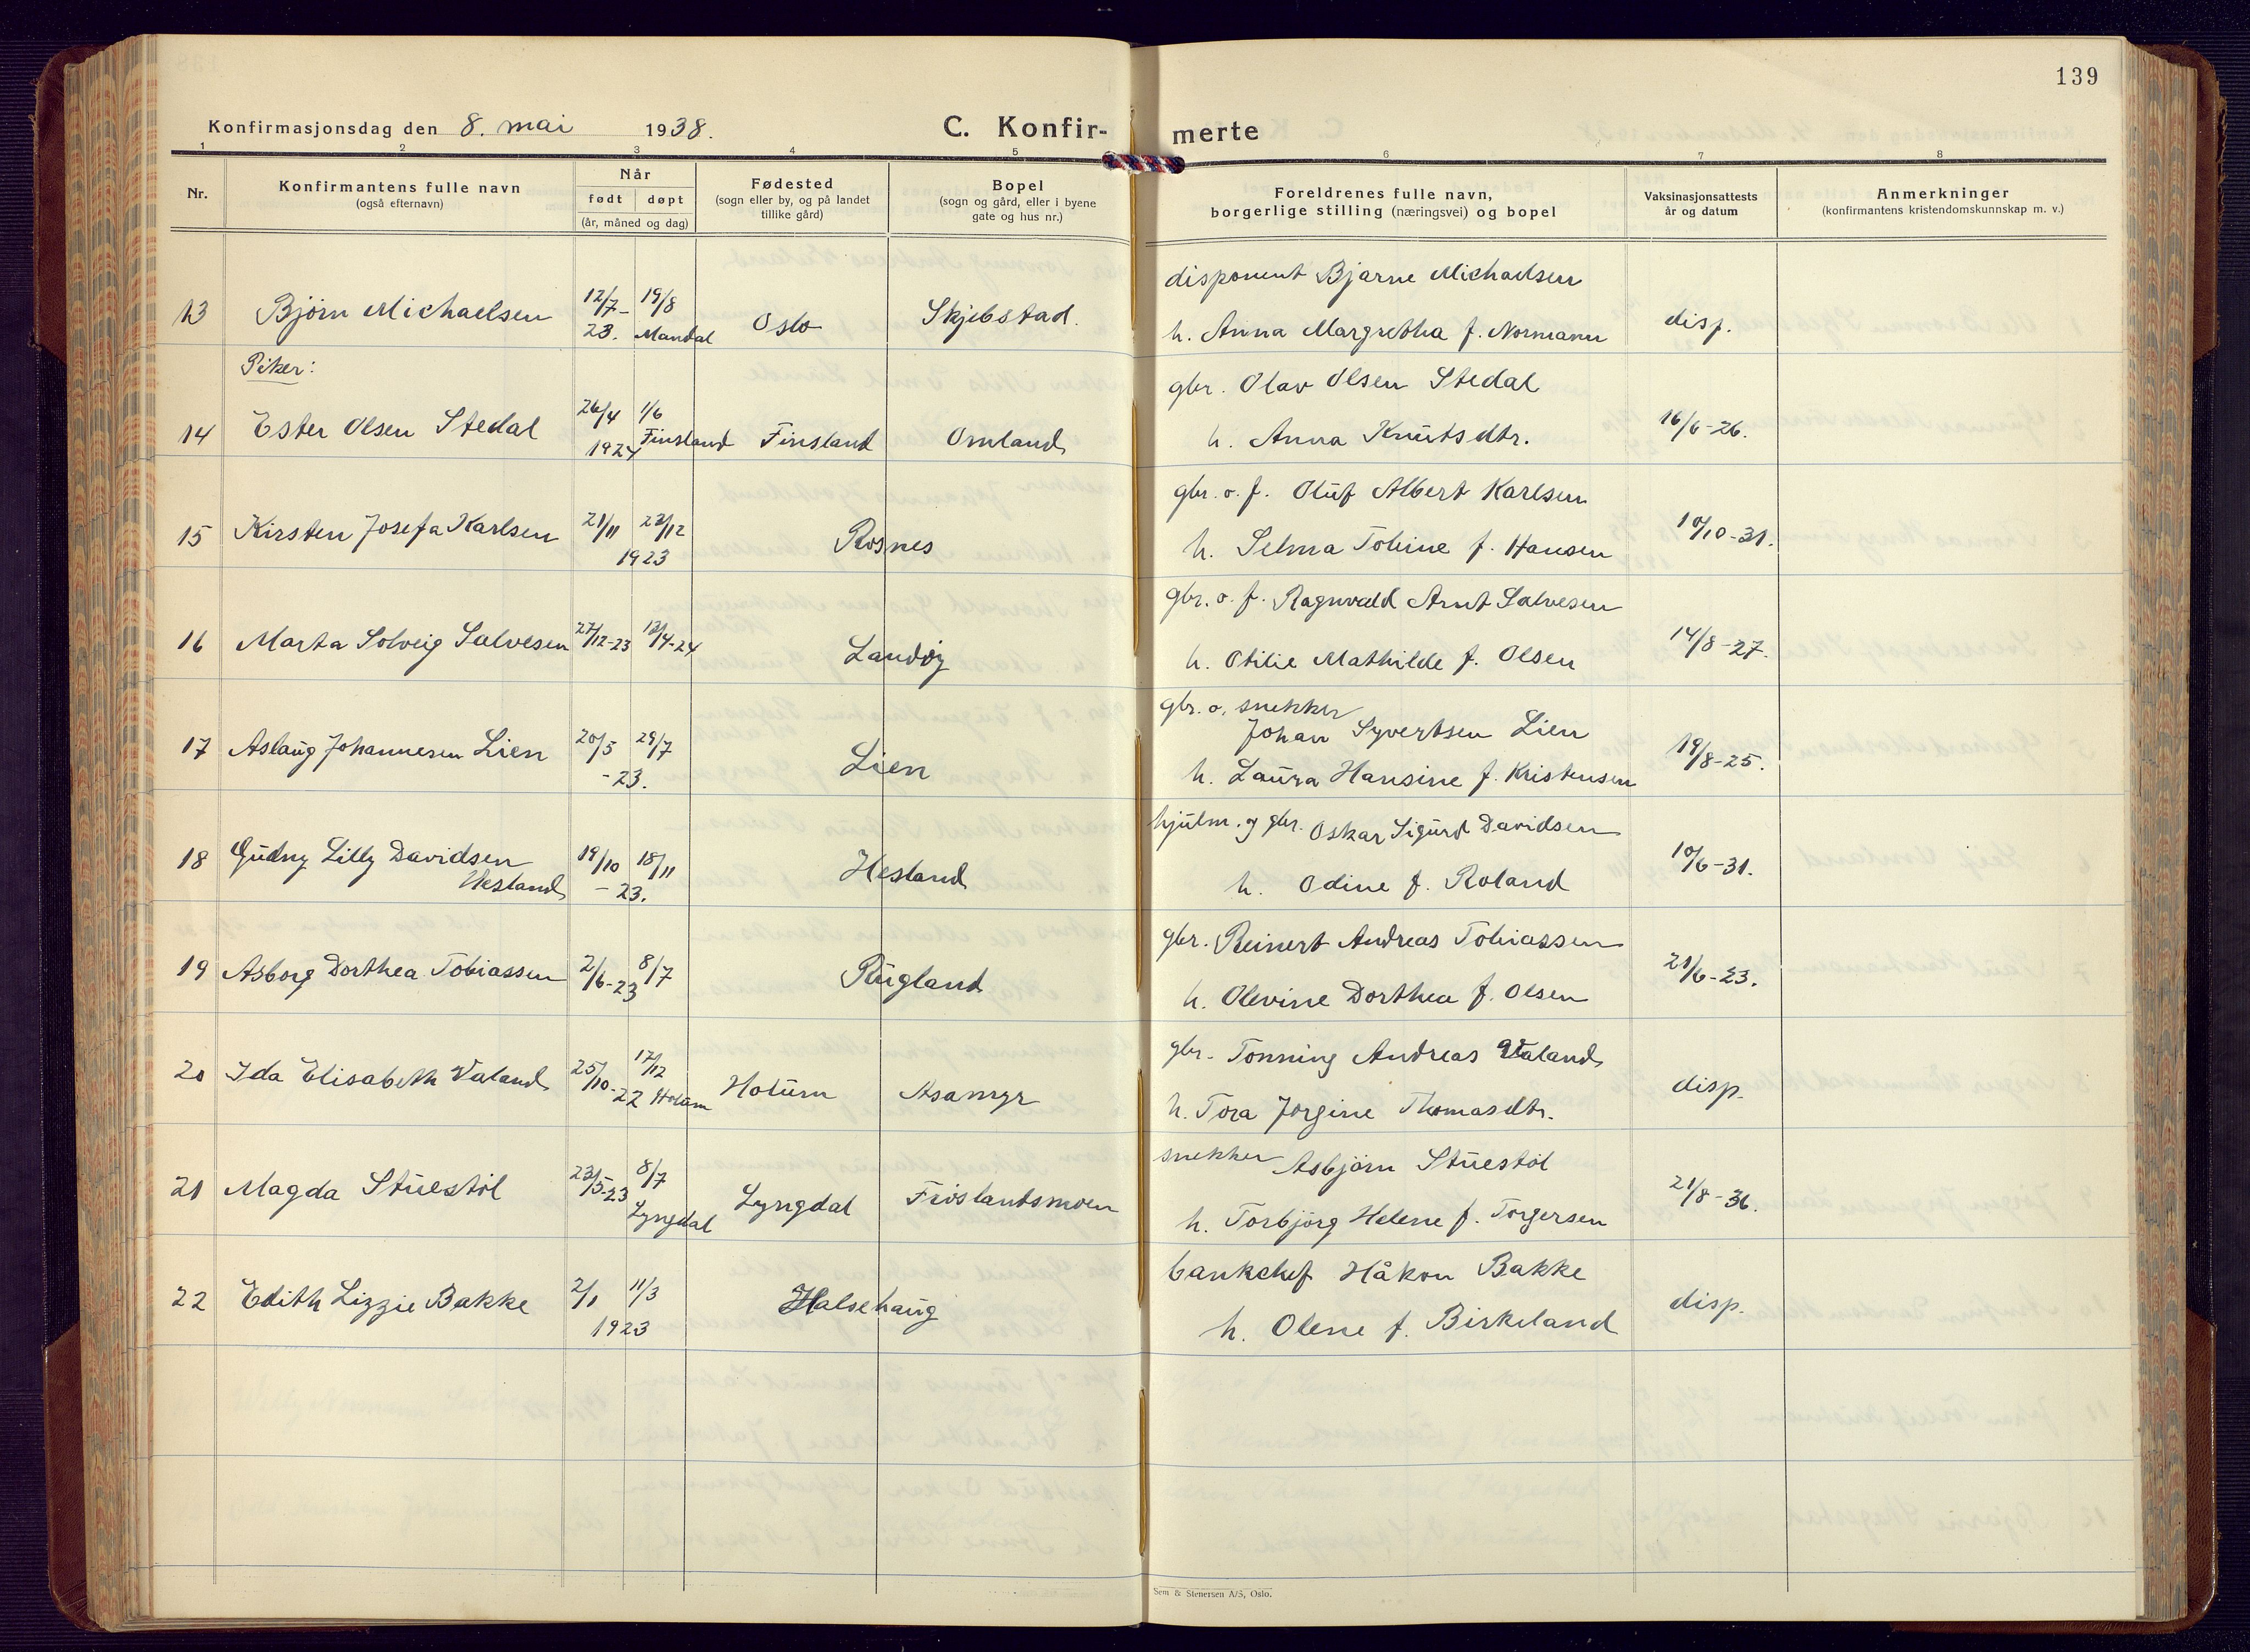 139
Konfirmasjonsdag den 8. mai 1938.
C. Konfir-merte
1 2 3 4 5 6 7 8
Nr.
Konfirmantens fulle navn
(også efternavn)
Når
født døpt
(år, måned og dag)
Fødested
(sogn eller by, og på landet
tillike gård)
Bopel
(sogn og gård, eller i byene
gate og hus nr.)
Foreldrenes fulle navn,
borgerlige stilling (næringsvei) og bopel
Vaksinasjonsattests
år og datum
Anmerkninger
(konfirmantens kristendomskunnskap m. v.)
disponent Bjarne Michaelsen
13 Bjørn Michaelsen 12/7- 19/8 Oslo Skjebstad. disp.
23. Mandal h. Anna Margretha f. Normann
Piker:
gbr. Olav Olsen Stedal
14 Ester Olsen Stedal 26/4 1/6 Finsland Omland 16/6-26.
1924 Finsland h. Anna Knutsdtr.
gbr. o. f. Oluf Albert Karlsen
15 Kirsten Josefa Karlsen 21/11 23/12 Rosnes 10/10-31.
1923 h. Selma Tobine f. Hansen
gbr. o. f. Ragnvald Arnt Salvesen
16 Marta Solveig Salvesen 27/12-23 13/4-24 Landøy 14/8-27.
h. Otilie Mathilde f. Olsen
gbr. o. snekker
Johan Syvertsen Lien
17 Aslaug Johannesen Lien 20/5 29/7 Lien 19/8-25.
-23. h. Laura Hansine f. Kristensen
hjulm. og gbr. Oskar Sigurd Davidsen
18 Gudny Lilly Davidsen 19/10 18/11 Hesland 10/6-31.
Hesland -23. h. Odine f. Roland
gbr. Reinert Andreas Tobiassen
19 Asborg Dorthea Tobiassen 2/6-23 8/7 Rugland 21/6-23.
h. Olevine Dorthea f. Olsen
gbr. Tønning Andreas Valand
20 Ida Elisabeth Valand 25/10- 17/12 Holum Åsamyr disp.
22 Holum h. Tora Jørgine Thomasdtr.
snekker Asbjørn Stuestøl
21 Magda Stuestøl 23/5-23 8/7 Lyngdal Frøslandsmoen 21/8-36.
Lyngdal h. Torbjørg Helene f. Torgersen
bankchef Håkon Bakke
22 Edith Lizzie Bakke 2/1 11/3 Halsehaug disp.
1923 h. Olene f. Birkeland
Sem & Stenersen A/S, Oslo.